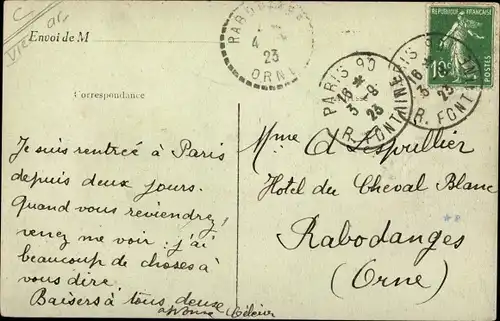 Envoi de M
Correspondance
RABODANGES
4 - 8
23
ORNE
PARIS 90
16 *
3 - 8
23
R. FONTAINE
PARIS 90
16 *
3 - 8
23
R. FONTAINE
REPUBLIQUE FRANÇAISE
10c
Je suis rentrée à Paris
depuis deux jours.
Quand vous reviendrez,
venez me voir : j'ai
beaucoup de choses à
vous dire.
Baisers à tous deux
Mme A Lespullier
Hotel du Cheval Blanc
Rabodanges
(Orne)